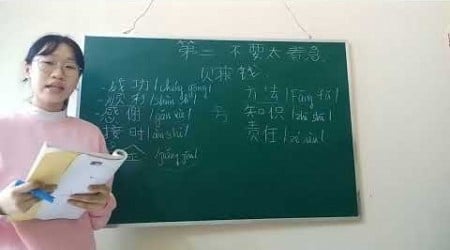 第二 不要太着急
钱
- 成功 /chéng gōng/
- 顺利 /shùn lì/
- 感谢 /gǎn xiè/
时 /àn shí/
金 /jiǎng jīn/
方法 /fāng fǎ/
知识 /zhī shi/
责任 /zé rèn/